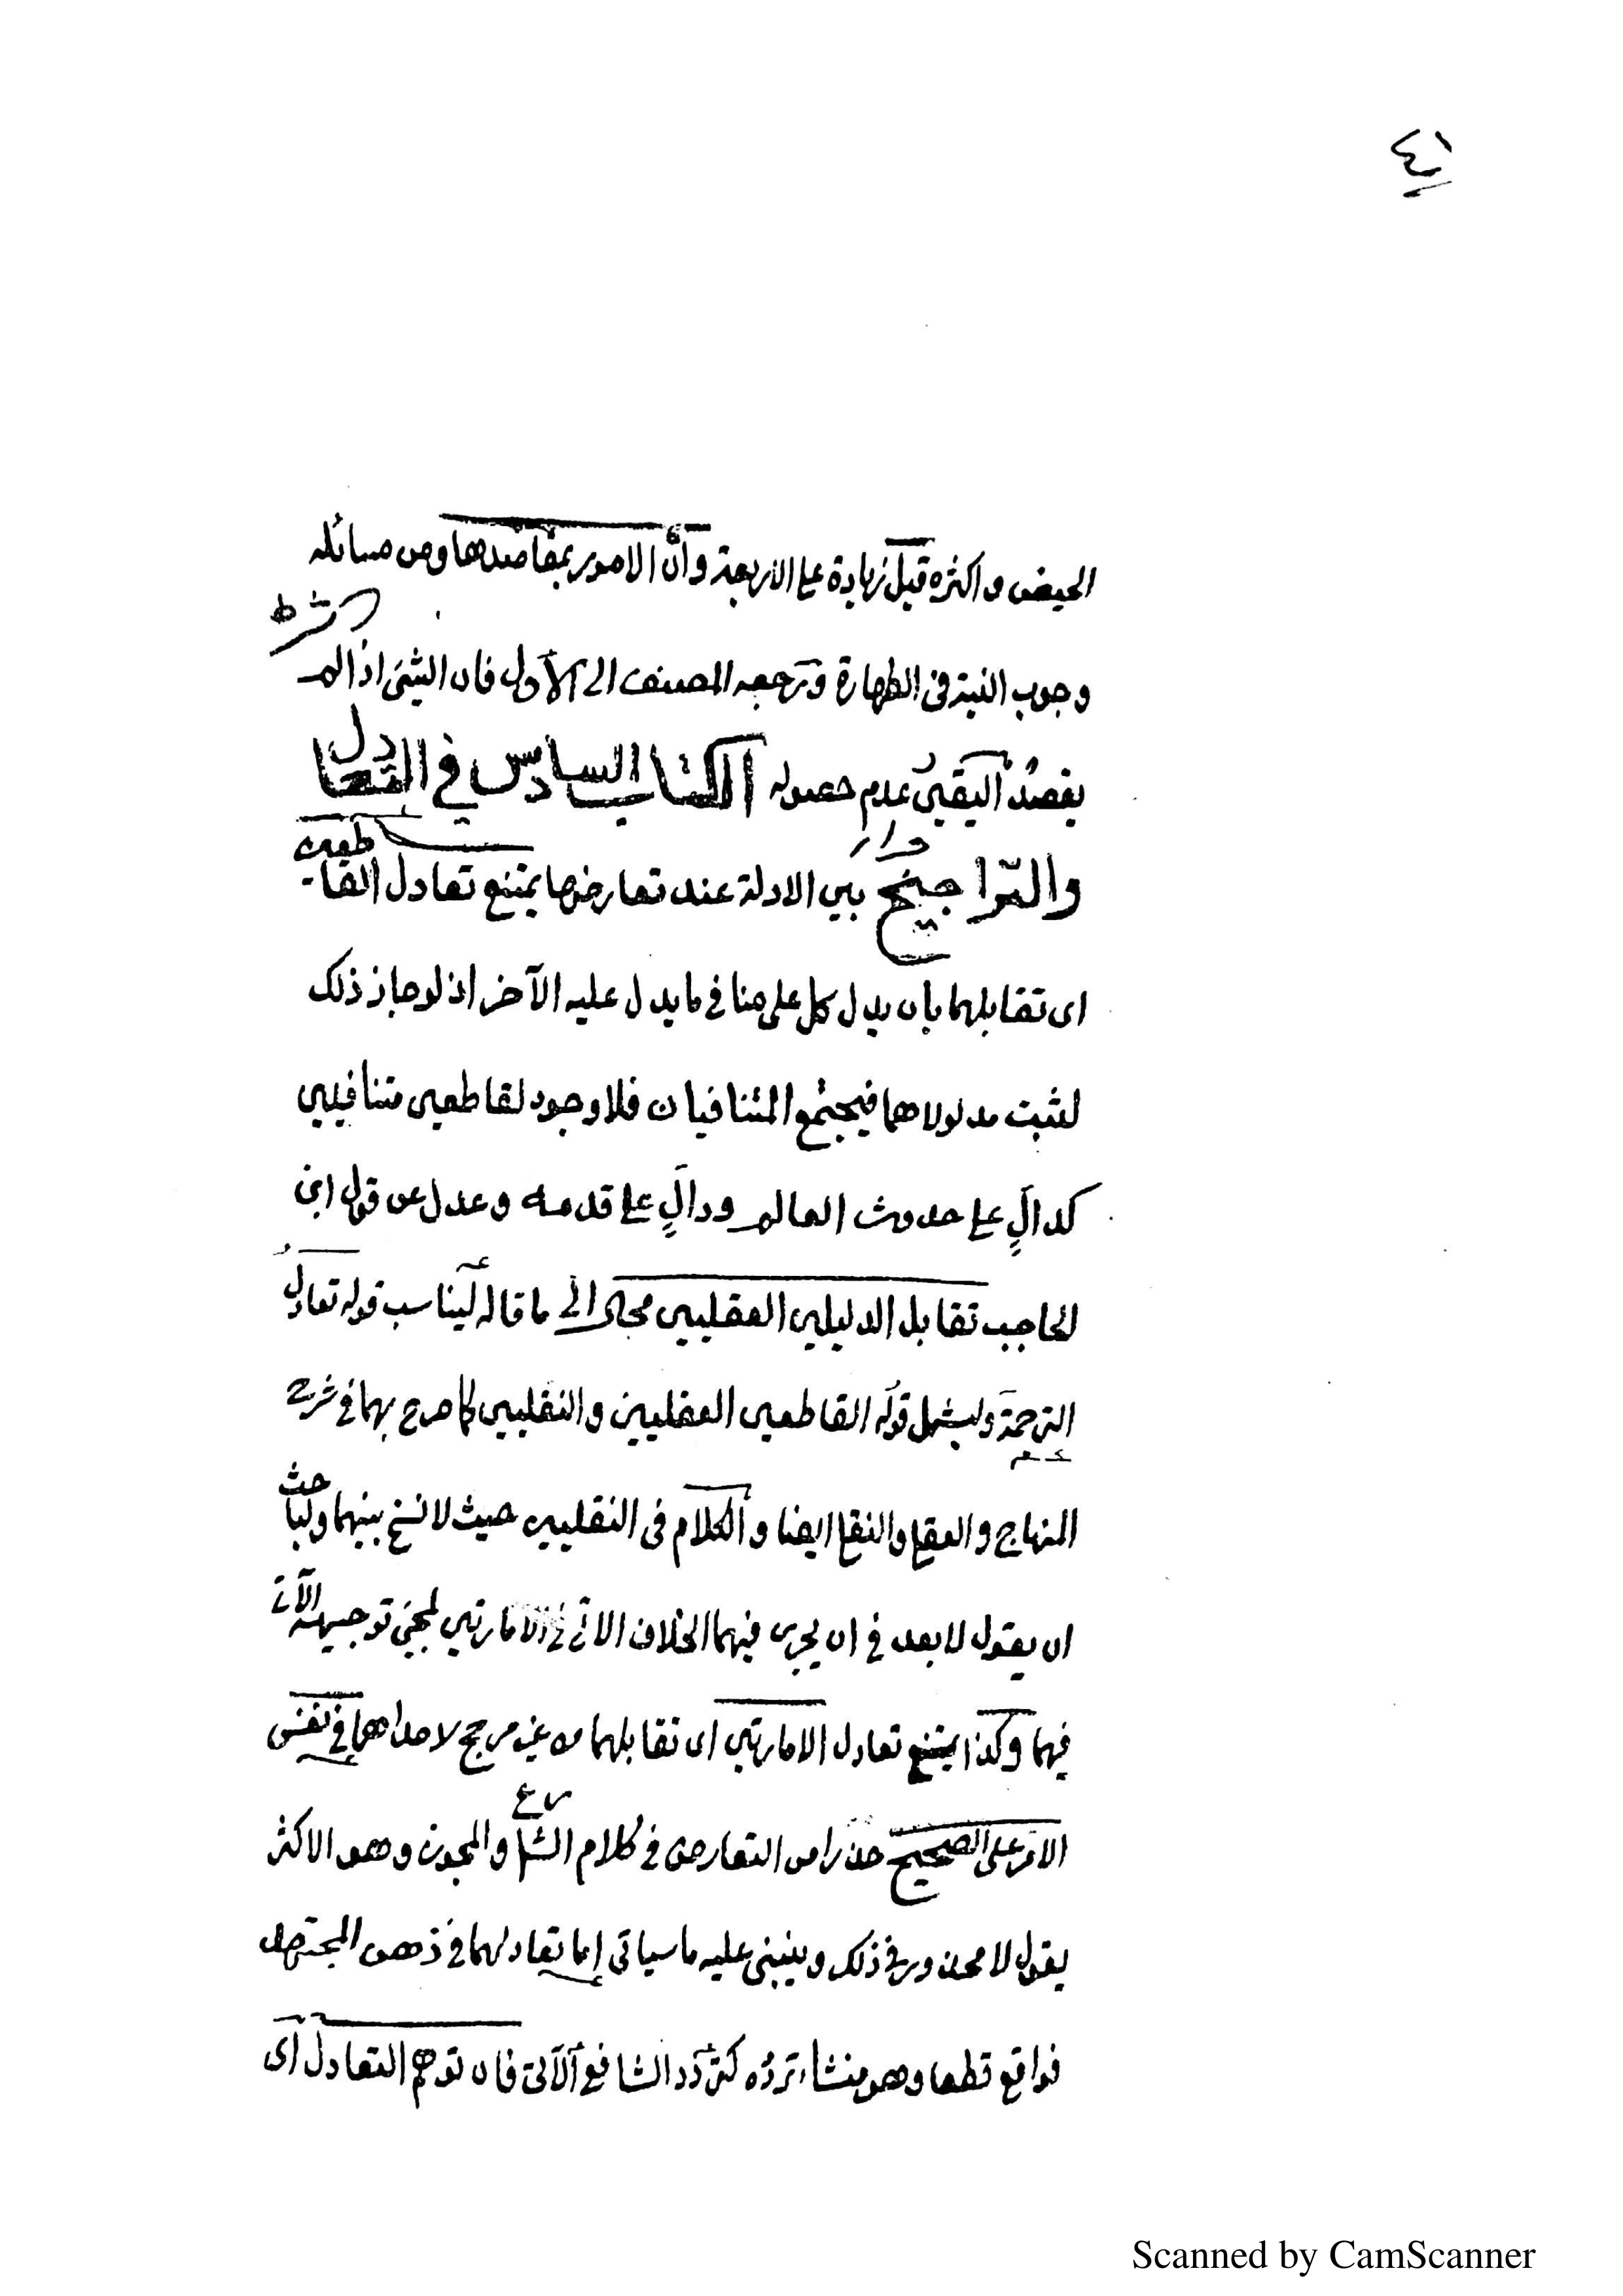 ٤١
الحيض واكثره قيل زيادة على الاربعة وانّ الامور بمقاصدها ومن مسائله
وجوب النية فى الطهارة ورجعه المصنف الى الأول فان الشئ اذا لم
يقصد اليقين عدم حصوله الكتاب السادس في التعادل
والتّراجيح بين الادلة عند تعارضها يمتنع تعادل القاطعين
اى تقابلهما بان يدل كل على منافى ما يدل عليه الآخر اذ لو جاز ذلك
لثبت مدلولاهما فيجتمع المتنافيان فلا وجود لقاطعين متنافيين
كدالٍ على حدوث العالم ودالٍ على قدمه وعدل عن قول ابن
الحاجب تقابل الدليلين العقليين محال الى ما قاله ليناسب قوله تعادل
الترجمة وليشمل قوله القاطعين العقليين والنقليين كما صرح بهما فى شرح
المنهاج والعقلى والنقلى ايضا والكلام فى النقليين حيث لا نسخ بينهما ولباحث
ان يقول لا بعد في ان يجرى فيهما الخلاف الاتى فى الامارتين لمجئ توجيهه الآتى
فيهما وكذا يمتنع تعادل الامارتين اى تقابلهما من غير مرجح لاحداهما فى نفس
الامر على الصحيح حذرا من التعارض فى كلام الشارع والمجوز وهو الاكثر
يقول لا محذور فى ذلك وينبنى عليه ما سياتى اما تعادلهما فى ذهن المجتهد
فواقع قطعا وهو منشاء تردّه كتردد الشافعى الآتى فان توهم التعادل اى
Scanned by CamScanner